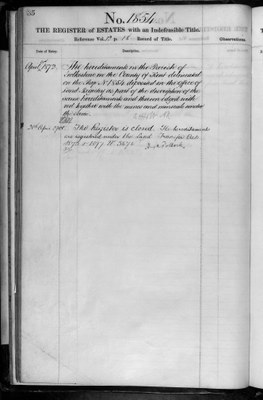 No. 1554
THE REGISTER of ESTATES with an Indefeasible Title.
Reference Vol. Record of Title.
Date of Entry. Description. Observations.
April 1873. The hereditaments in the Parish of
in the County of Kent delineated
on the Map No 1554 deposited in the office of
Land Registry as part of the description of the
same hereditaments and thereon edged with
red together with the mines and minerals under
the same.
The Register is closed. The hereditaments
are registered under the Land Transfer Acts
1875 & 1897